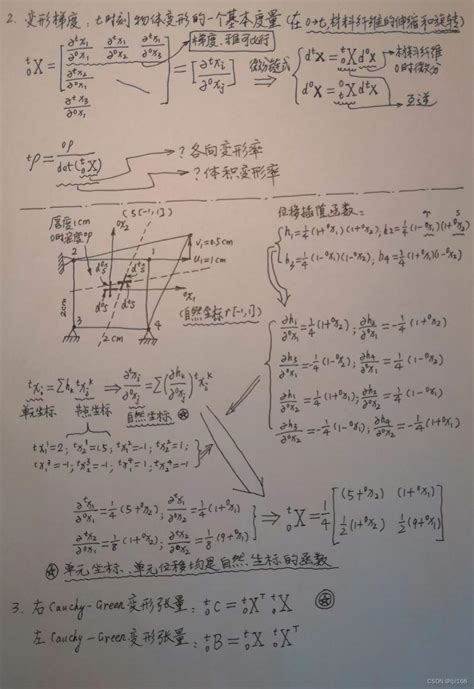 2. 变形梯度: t时刻物体变形的一个基本度量 (在0→t,材料纤维的伸缩和旋转)
ᵗ₀X = [∂ᵗx₁/∂⁰x₁ ∂ᵗx₁/∂⁰x₂ ∂ᵗx₁/∂⁰x₃; ∂ᵗx₂/∂⁰x₁; ∂ᵗx₃/∂⁰x₁] = [∂ᵗxᵢ/∂⁰xⱼ] ⇒ { dᵗx = ᵗ₀X d⁰x
d⁰x = ⁰ₜX dᵗx
微分链式
材料纤维
0时的微分
互逆
ᵗρ = ⁰ρ/det(ᵗ₀X)
? 各向变形率
? 体积变形率
厚度1cm
0时密度⁰ρ
(s[-1,1])
⁰x₂
v₁=0.5cm
u₁=1cm
2 1
d⁰s dᵗs
⁰x₁
(自然坐标r[-1,1])
2cm
3 4
2cm
位移插值函数:
r s
h₁=¼(1+⁰x₁)(1+⁰x₂); h₂=¼(1-⁰x₁)(1+⁰x₂)
h₃=¼(1-⁰x₁)(1-⁰x₂); h₄=¼(1+⁰x₁)(1-⁰x₂)
∂h₁/∂⁰x₁=¼(1+⁰x₂); ∂h₂/∂⁰x₁=-¼(1+⁰x₂)
∂h₃/∂⁰x₁=-¼(1-⁰x₂); ∂h₄/∂⁰x₁=¼(1-⁰x₂)
∂h₁/∂⁰x₂=¼(1+⁰x₁); ∂h₂/∂⁰x₂=¼(1-⁰x₁)
∂h₃/∂⁰x₂=-¼(1-⁰x₁); ∂h₄/∂⁰x₂=-¼(1+⁰x₁)
ᵗxᵢ=Σhₖᵗxᵢᵏ ⇒ ∂ᵗxᵢ/∂⁰xⱼ=Σ(∂hₖ/∂⁰xⱼ)ᵗxᵢᵏ
单元坐标 节点坐标 自然坐标
ᵗx₁¹=2; ᵗx₂¹=1.5; ᵗx₁²=-1; ᵗx₂²=1;
ᵗx₁³=-1; ᵗx₂³=-1; ᵗx₁⁴=1; ᵗx₂⁴=-1
∂ᵗx₁/∂⁰x₁=¼(5+⁰x₂); ∂ᵗx₁/∂⁰x₂=¼(1+⁰x₁)
∂ᵗx₂/∂⁰x₁=⅛(1+⁰x₂); ∂ᵗx₂/∂⁰x₂=⅛(9+⁰x₁)
⇒ ᵗ₀X=¼[(5+⁰x₂) (1+⁰x₁); ½(1+⁰x₂) ½(9+⁰x₁)]
单元坐标、单元位移均是自然坐标的函数
3. 右Cauchy-Green变形张量: ᵗ₀C = ᵗ₀Xᵀ ᵗ₀X
左Cauchy-Green变形张量: ᵗ₀B = ᵗ₀X ᵗ₀Xᵀ